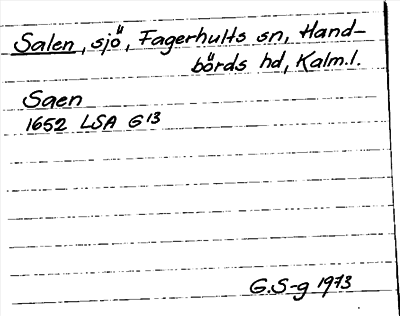 Salen, sjö, Fagerhults sn, Hand-
börds hd, Kalm.l.
Saen
1652 LSA G 13
G.S-g 1973